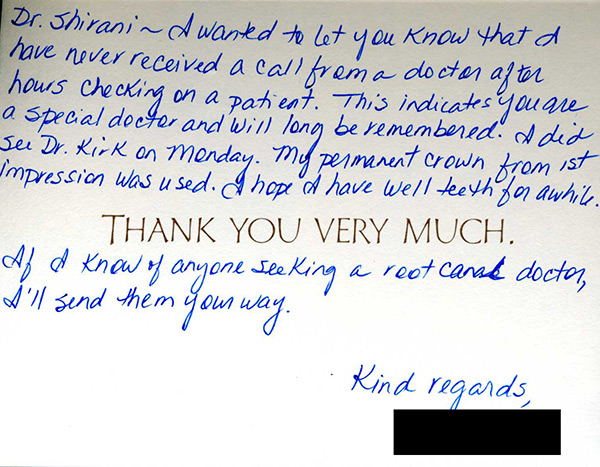 Dr. Shirani ~ I wanted to let you know that I
have never received a call from a doctor after
hours checking on a patient. This indicates you are
a special doctor and will long be remembered. I did
see Dr. Kirk on Monday. My permanent crown from 1st
impression was used. I hope I have well teeth for awhile.
THANK YOU VERY MUCH.
If I know of anyone seeking a root canal doctor,
I'll send them your way.
Kind regards,